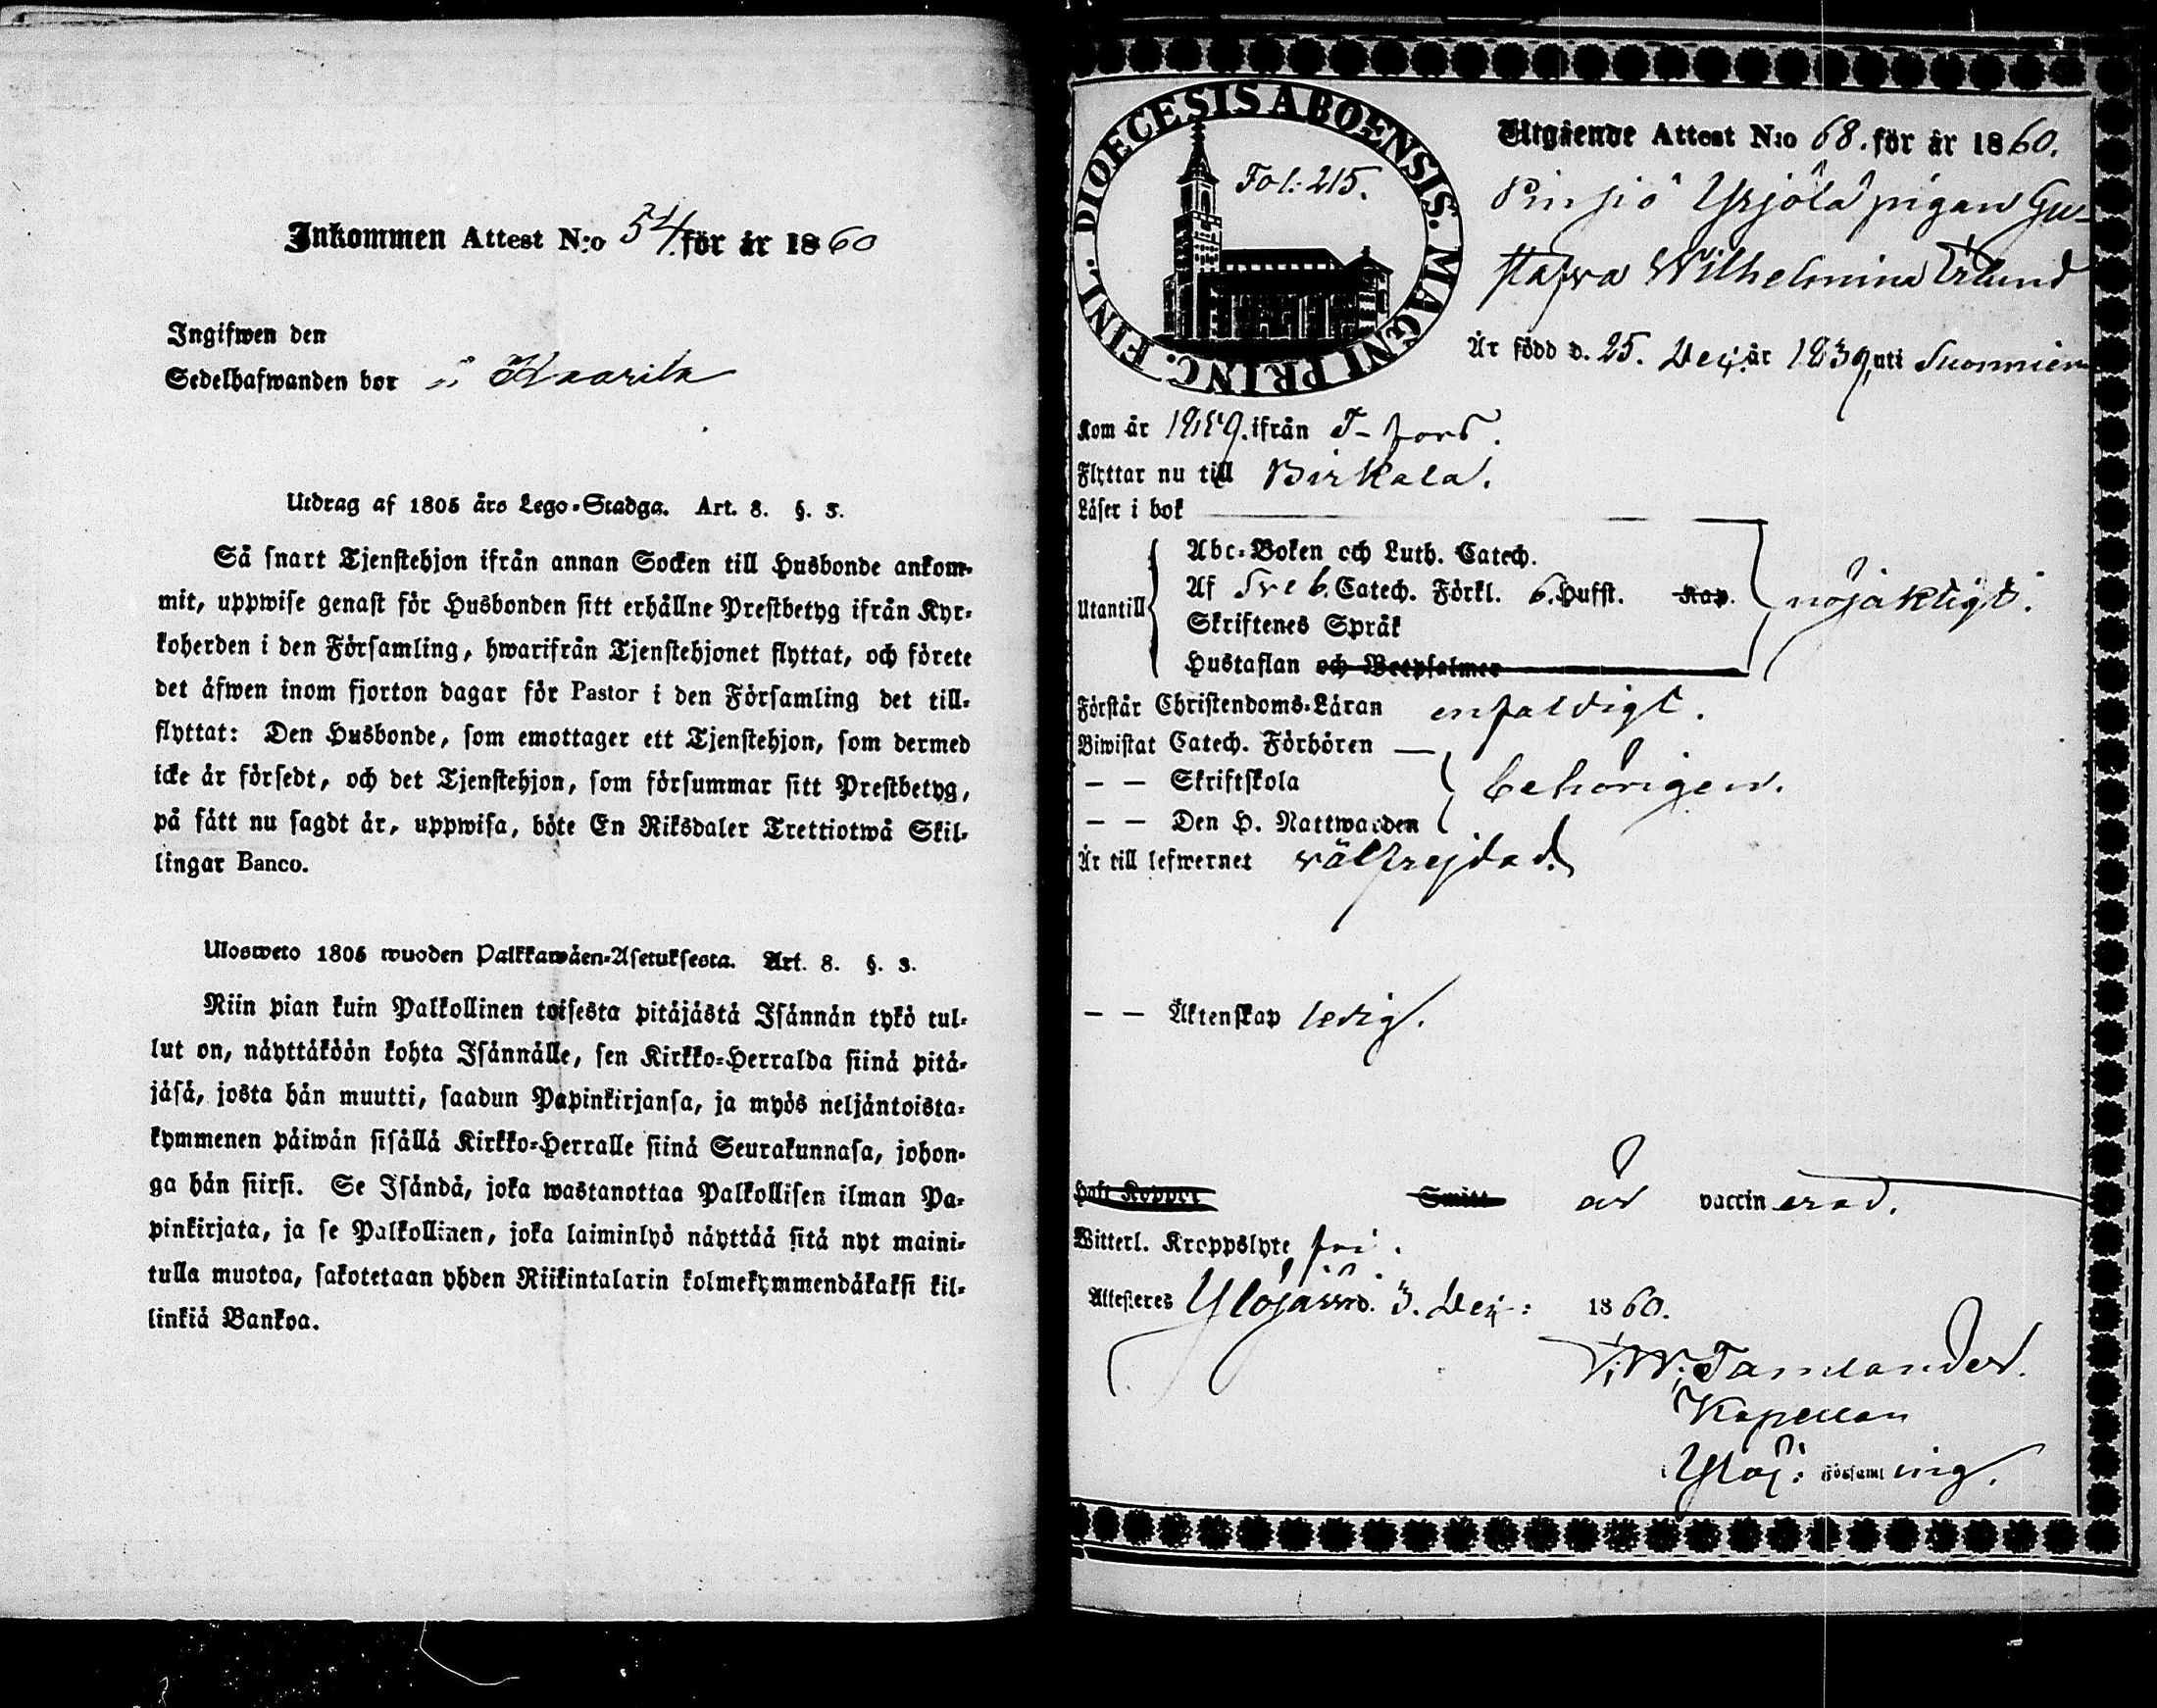 Inkommen Attest N:o 54. för år 1860
Ingifwen den
Sedelhafwanden bor i Kaarila
Utdrag af 1805 års Lego-Stadga. Art. 8. §. 3.
Så snart Tjenstehjon ifrån annan Socken till Husbonde ankom-
mit, uppwise genast för Husbonden sitt erhållne Prestbetyg ifrån Kyr-
koherden i den Församling, hwarifrån Tjenstehjonet flyttat, och förete
det äfwen inom fjorton dagar för Pastor i den Församling det till-
flyttat: Den Husbonde, som emottager ett Tjenstehjon, som dermed
icke är försedt, och det Tjenstehjon, som försummar sitt Prestbetyg,
på sätt nu sagdt är, uppwisa, böte En Riksdaler Trettiotwå Skil-
lingar Banco.
Ulosweto 1805 wuoden Palkkawäen-Asetuksesta. Art. 8. §. 3.
Niin pian kuin Palkollinen toisesta pitäjästä Isännän tykö tul-
lut on, näyttäköön kohta Isännälle, sen Kirkko-Herralda siinä pitä-
jäsä, josta hän muutti, saadun Papinkirjansa, ja myös neljäntoista-
kymmenen päiwän sisällä Kirkko-Herralle siinä Seurakunnasa, johon-
ga hän siirsi. Se Isändä, joka wastanottaa Palkollisen ilman Pa-
pinkirjata, ja se Palkollinen, joka laiminlyö näyttää sitä nyt maini-
tulla muotoa, sakotetaan yhden Riikintalarin kolmekymmendäkaksi kil-
linkiä Bankoa.
DIOECESIS ABOENSIS. MAGNI PRINC. FINL.
Fol: 215.
Utgående Attest N:o 68. för år 1860.
Pinsiö Yrjölä pigan Gu-
stafva Wilhelmina Erlund
Är född d. 25. Dec. år 1839, uti Suonniem
Kom år 1859. ifrån T-fors.
Flyttar nu till Birkala.
Läser i bok
Utantill
Abc-Boken och Luth. Catech.
Af Sveb. Catech. Förkl. 6. Hufst. Kap. nöjaktigt.
Skriftenes Språk
Hustaflan och Botpsalmer
Förstår Christendoms-Läran enfaldigt.
Biwistat Catech. Förhören
— — Skriftskola behörigen.
— — Den H. Nattwarden
Är till lefwernet välfrejdad.
— — Äktenskap ledig.
Haft Koppor Smitt är vaccinerad.
Witterl. Kroppslyte fri.
Attesteras Ylöjärvi d. 3. Dec: 1860.
Tamlander.
Kapellan
i Ylöj: Församling.